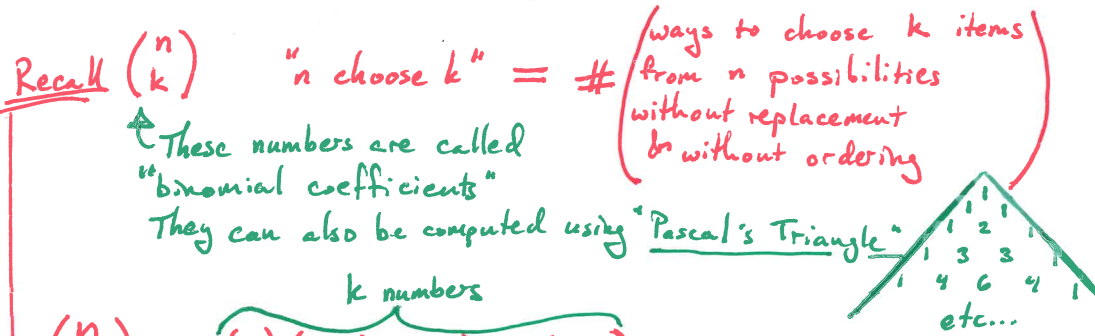 Recall (n k) "n choose k" = # (ways to choose k items
from n possibilities
without replacement
& without ordering)
These numbers are called
"binomial coefficients"
They can also be computed using "Pascal's Triangle"
1
1 1
1 2 1
1 3 3 1
1 4 6 4 1
etc...
k numbers
(n